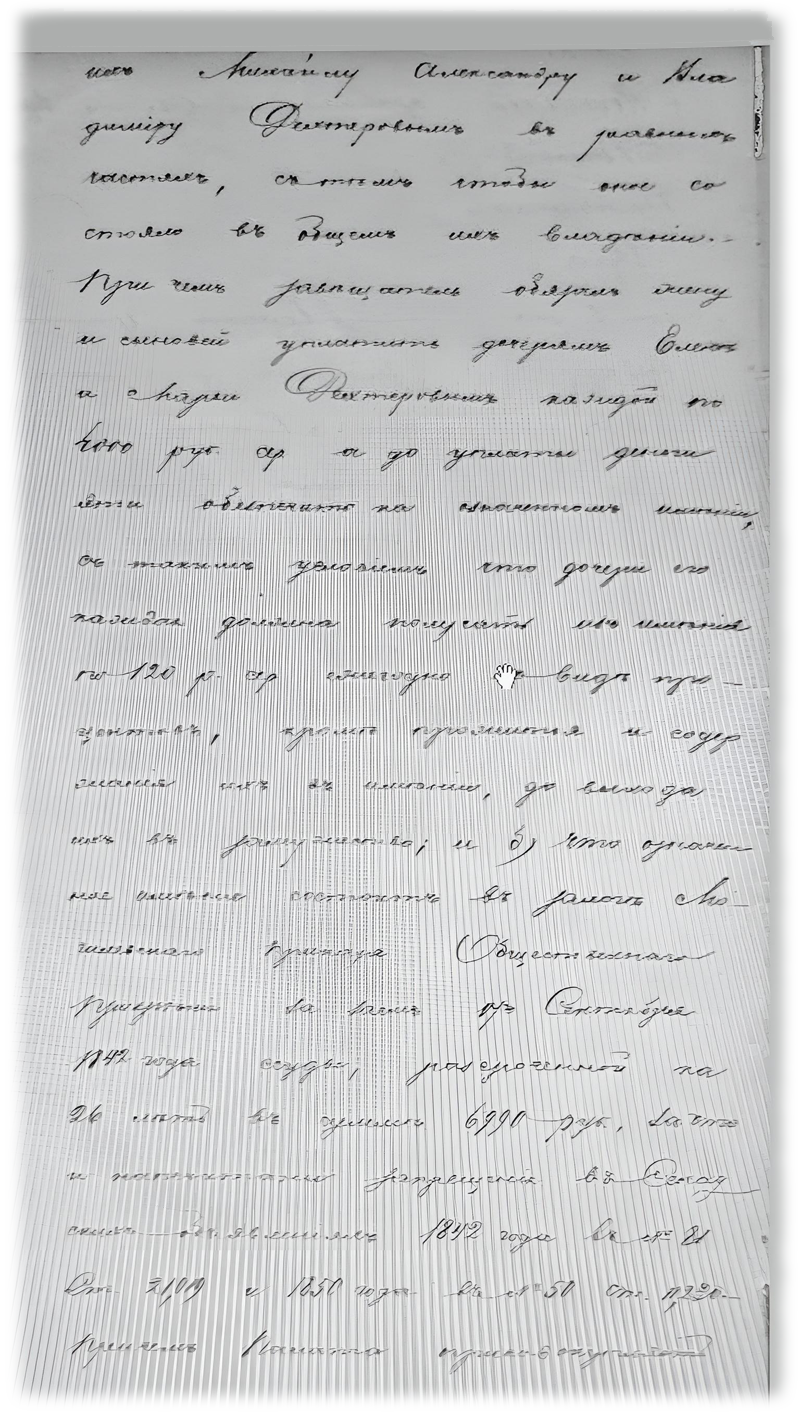 ихъ Михаилу Александру и Вла
диміру Дехтеровымъ въ равныхъ
частяхъ, съ тѣмъ чтобы оное со
стояло въ общемъ ихъ владѣніи.-
При чемъ завѣщатель обязалъ жену
и сыновей уплатить дочерямъ Еленѣ
и Маріи Дехтеровымъ каждой по
4000 руб. ср. а до уплаты деньги
эти обезпечить на означенномъ имѣніи,
съ такимъ условіемъ что дочери его
каждая должна получать изъ имѣнія
по 120 р. ср ежегодно видѣ про-
центовъ, кромѣ прожитья и содер
жанія ихъ въ имѣніи, до выхода
ихъ въ замужество; и б) что означен
ное имѣніе состоитъ въ залогѣ Мо-
гилевскаго Приказа Общественнаго
Призрѣнія за взятую Сентября
1842 года ссуду, разсроченной на
26 лѣтъ въ суммѣ 6990 руб., за что
и напечатаны запрещенія въ Сенат
скихъ объявленіяхъ 1842 года въ № 81
Ст. 21,019 и 1850 года въ № 50 ст.
Причемъ Палата